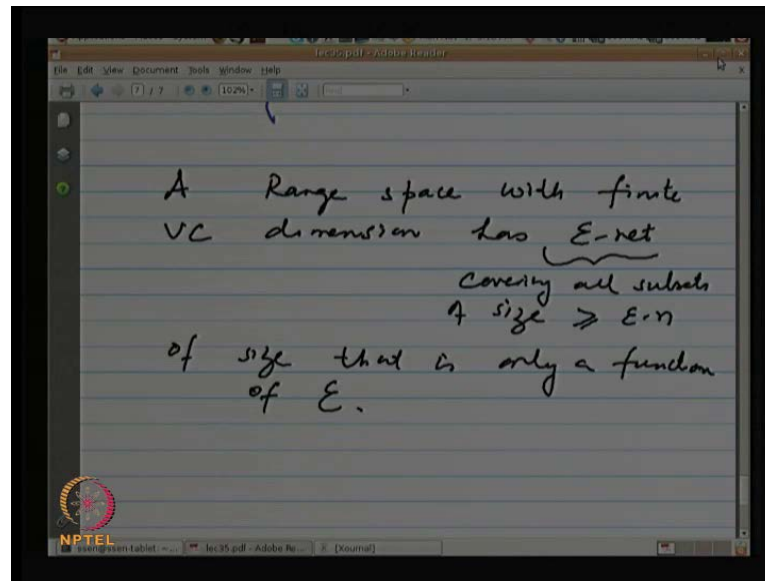 lec35.pdf - Adobe Reader
File Edit View Document Tools Window Help
7 / 7 102% Find
A Range space with finite
VC dimension has ε-net
Covering all subsets
of size ≥ ε.n
of size that is only a function
of ε.
NPTEL
ssen@ssen-tablet: ~ lec35.pdf - Adobe Re... [Xournal]